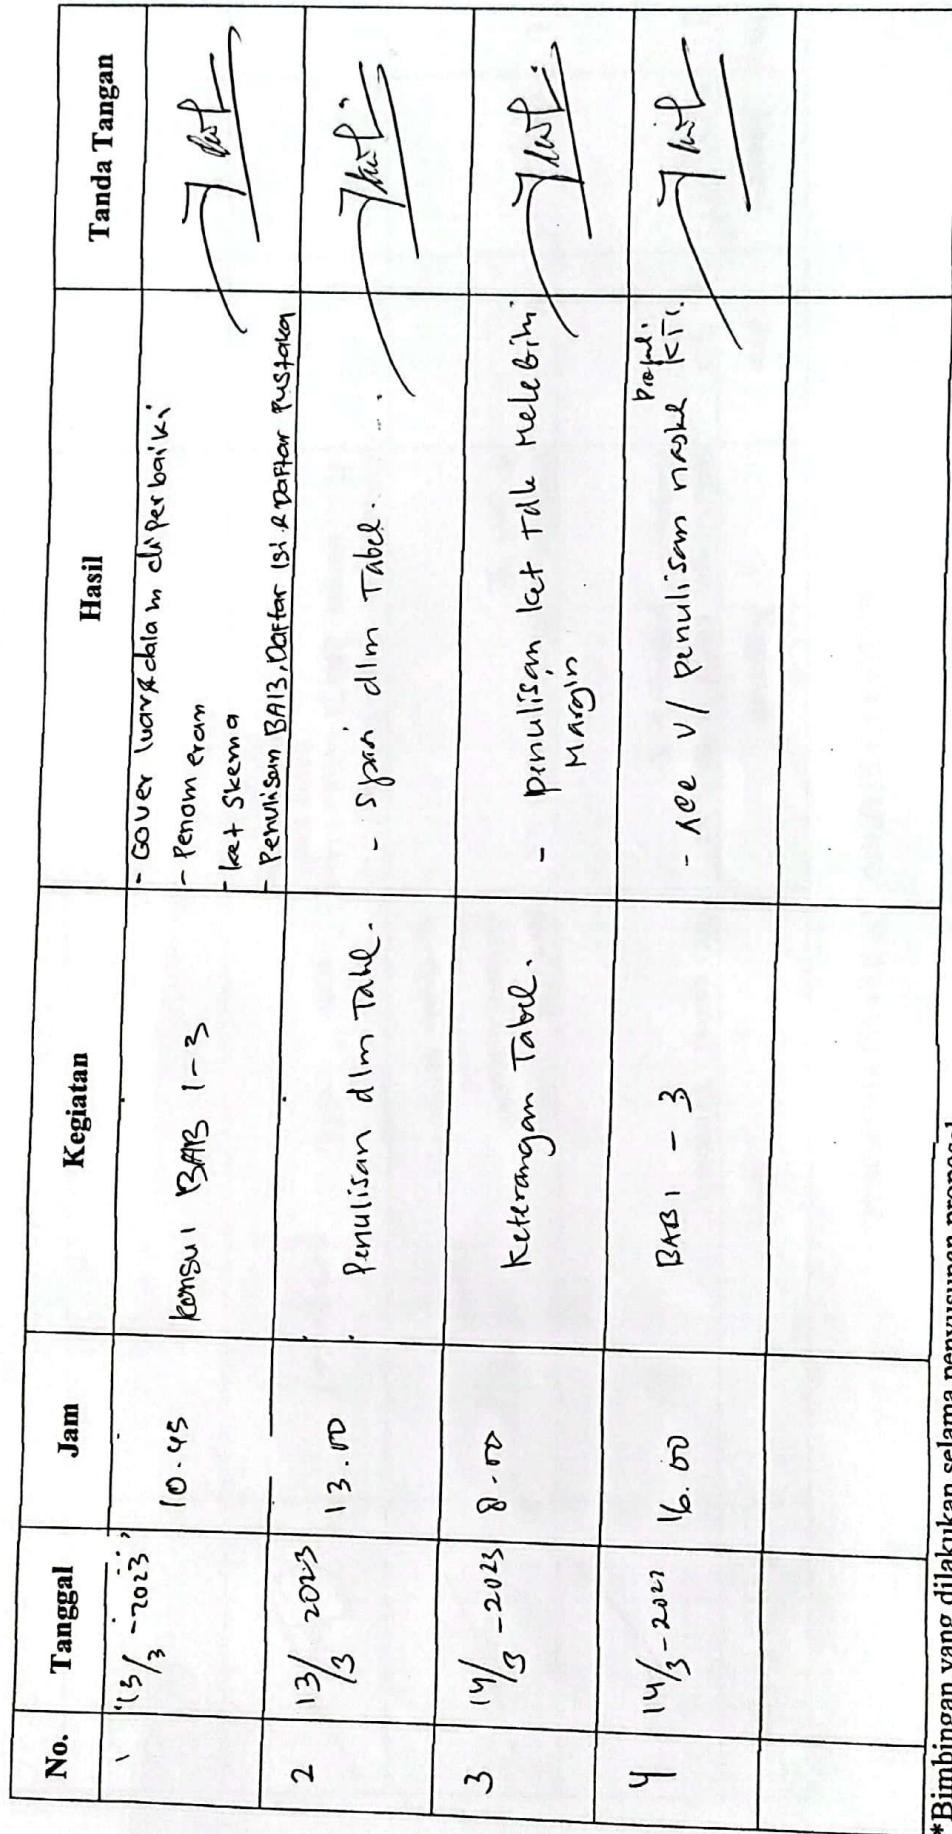 No. Tanggal Jam Kegiatan Hasil Tanda Tangan
1 13/3 - 2023 10.45 Konsul BAB 1-3
- Cover luar & dalam diperbaiki
- Penomeran
- ket Skema
- Penulisan BAB, Daftar Isi & Daftar Pustaka
2 13/3 2023 13.00 Penulisan dlm Tabel. - Spasi dlm Tabel.
3 14/3 - 2023 8.00 Keterangan Tabel. - penulisan ket tdk Melebihi
Margin
4 14/3 - 2023 16.00 BAB 1 - 3 - Acc u/ penulisan KTI.
*Bimbingan yang dilakukan selama penyusunan proposal